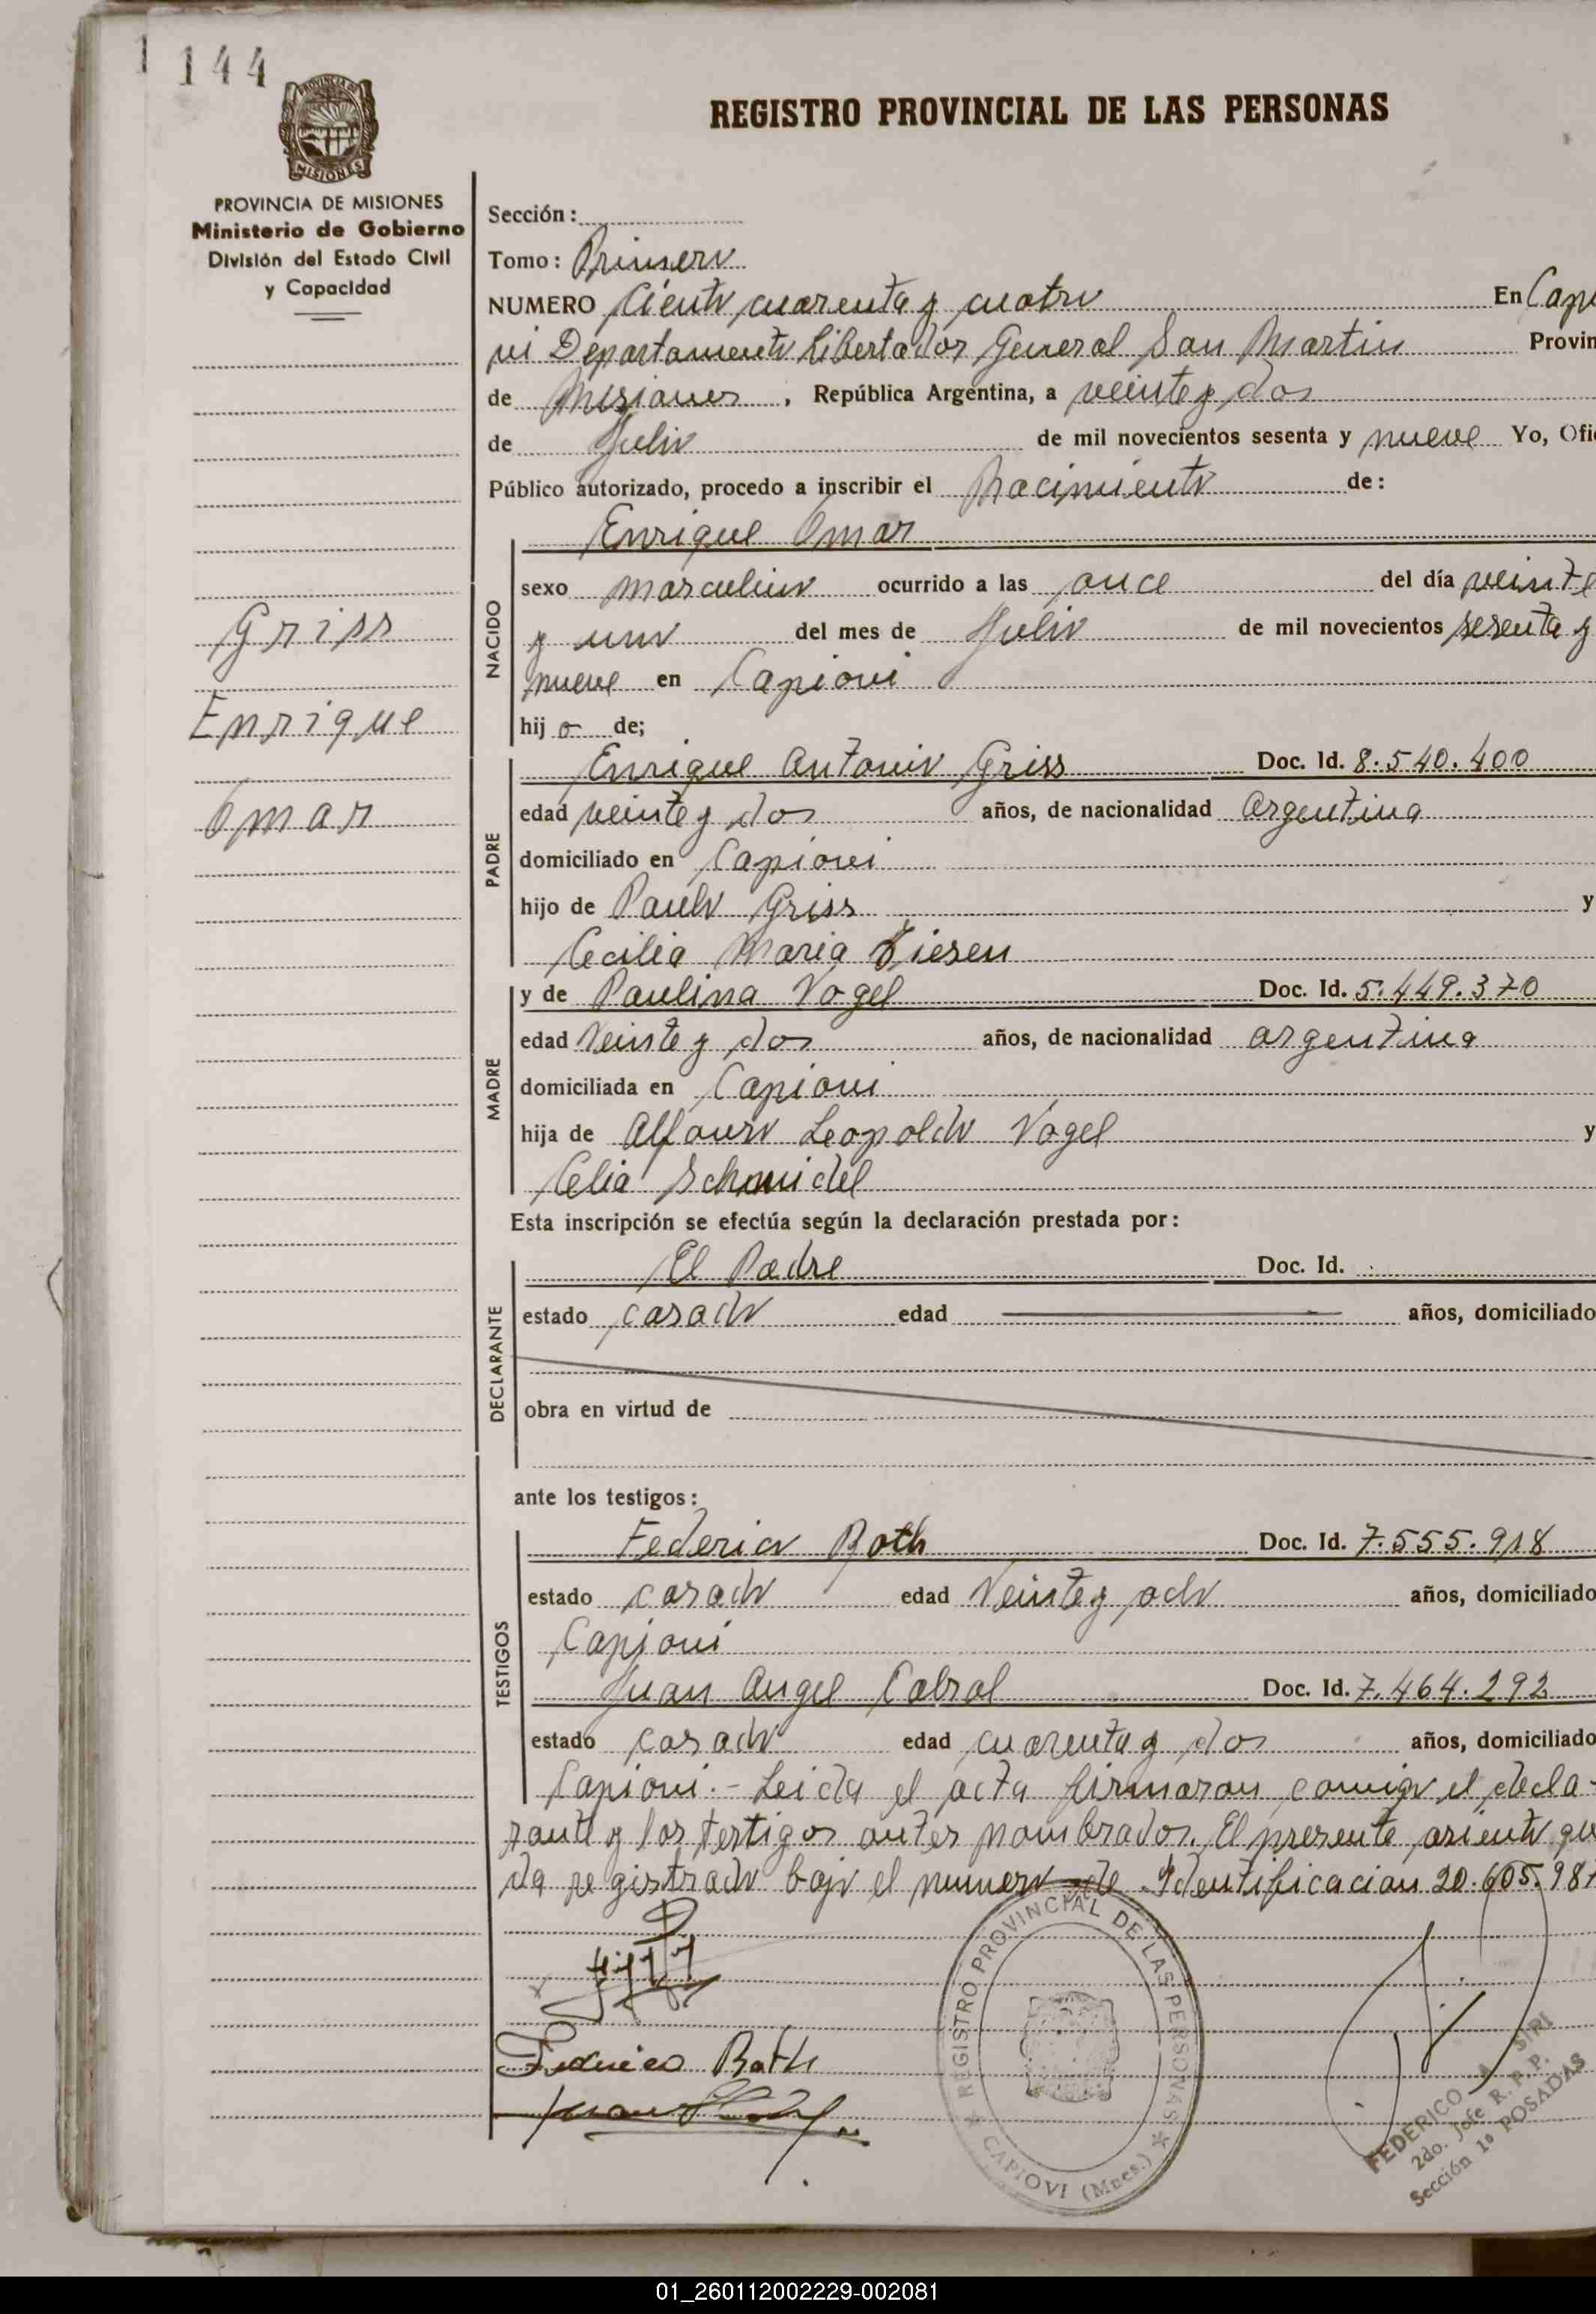 1 144
REGISTRO PROVINCIAL DE LAS PERSONAS
PROVINCIA DE MISIONES
Ministerio de Gobierno
División del Estado Civil
y Capacidad
Sección:
Tomo: Primero
NUMERO Ciento cuarenta y cuatro En Capio
vi Departamento Libertador General San Martin Provin
de Misiones, República Argentina, a veinte y dos
de Julio de mil novecientos sesenta y nueve Yo, Ofi
Público autorizado, procedo a inscribir el Nacimiento de:
Griss
Enrique
Omar
NACIDO
Enrique Omar
sexo masculino ocurrido a las once del día veinte
y uno del mes de Julio de mil novecientos sesenta y
nueve en Capiovi
hijo de;
PADRE
Enrique Antonio Griss Doc. Id. 8.540.400
edad veinte y dos años, de nacionalidad argentina
domiciliado en Capiovi
hijo de Paulo Griss y
Cecilia Maria
MADRE
y de Paulina Vogel Doc. Id. 5.449.370
edad Veinte y dos años, de nacionalidad argentina
domiciliada en Capiovi
hija de Alfonso Leopoldo Vogel y
Celia Schmidel
Esta inscripción se efectúa según la declaración prestada por:
DECLARANTE
El Padre Doc. Id.
estado casado edad años, domiciliado
obra en virtud de
ante los testigos:
TESTIGOS
Federico Roth Doc. Id. 7.555.918
estado casado edad Veinte y ocho años, domiciliado
Capiovi
Juan Angel Cabral Doc. Id. 7.464.292
estado casado edad cuarenta y dos años, domiciliado
Capiovi.- Leida el acta firmaron comigo el decla-
rante y los testigos antes nombrados. El presente asiento que
da registrado bajo el numero de Identificacion 20.605.987
Federico Roth
REGISTRO PROVINCIAL DE LAS PERSONAS
* CAPIOVI (Mnes.) *
FEDERICO A. SIRI
2do. Jefe R. P. P.
Sección 1º POSADAS
01_260112002229-002081